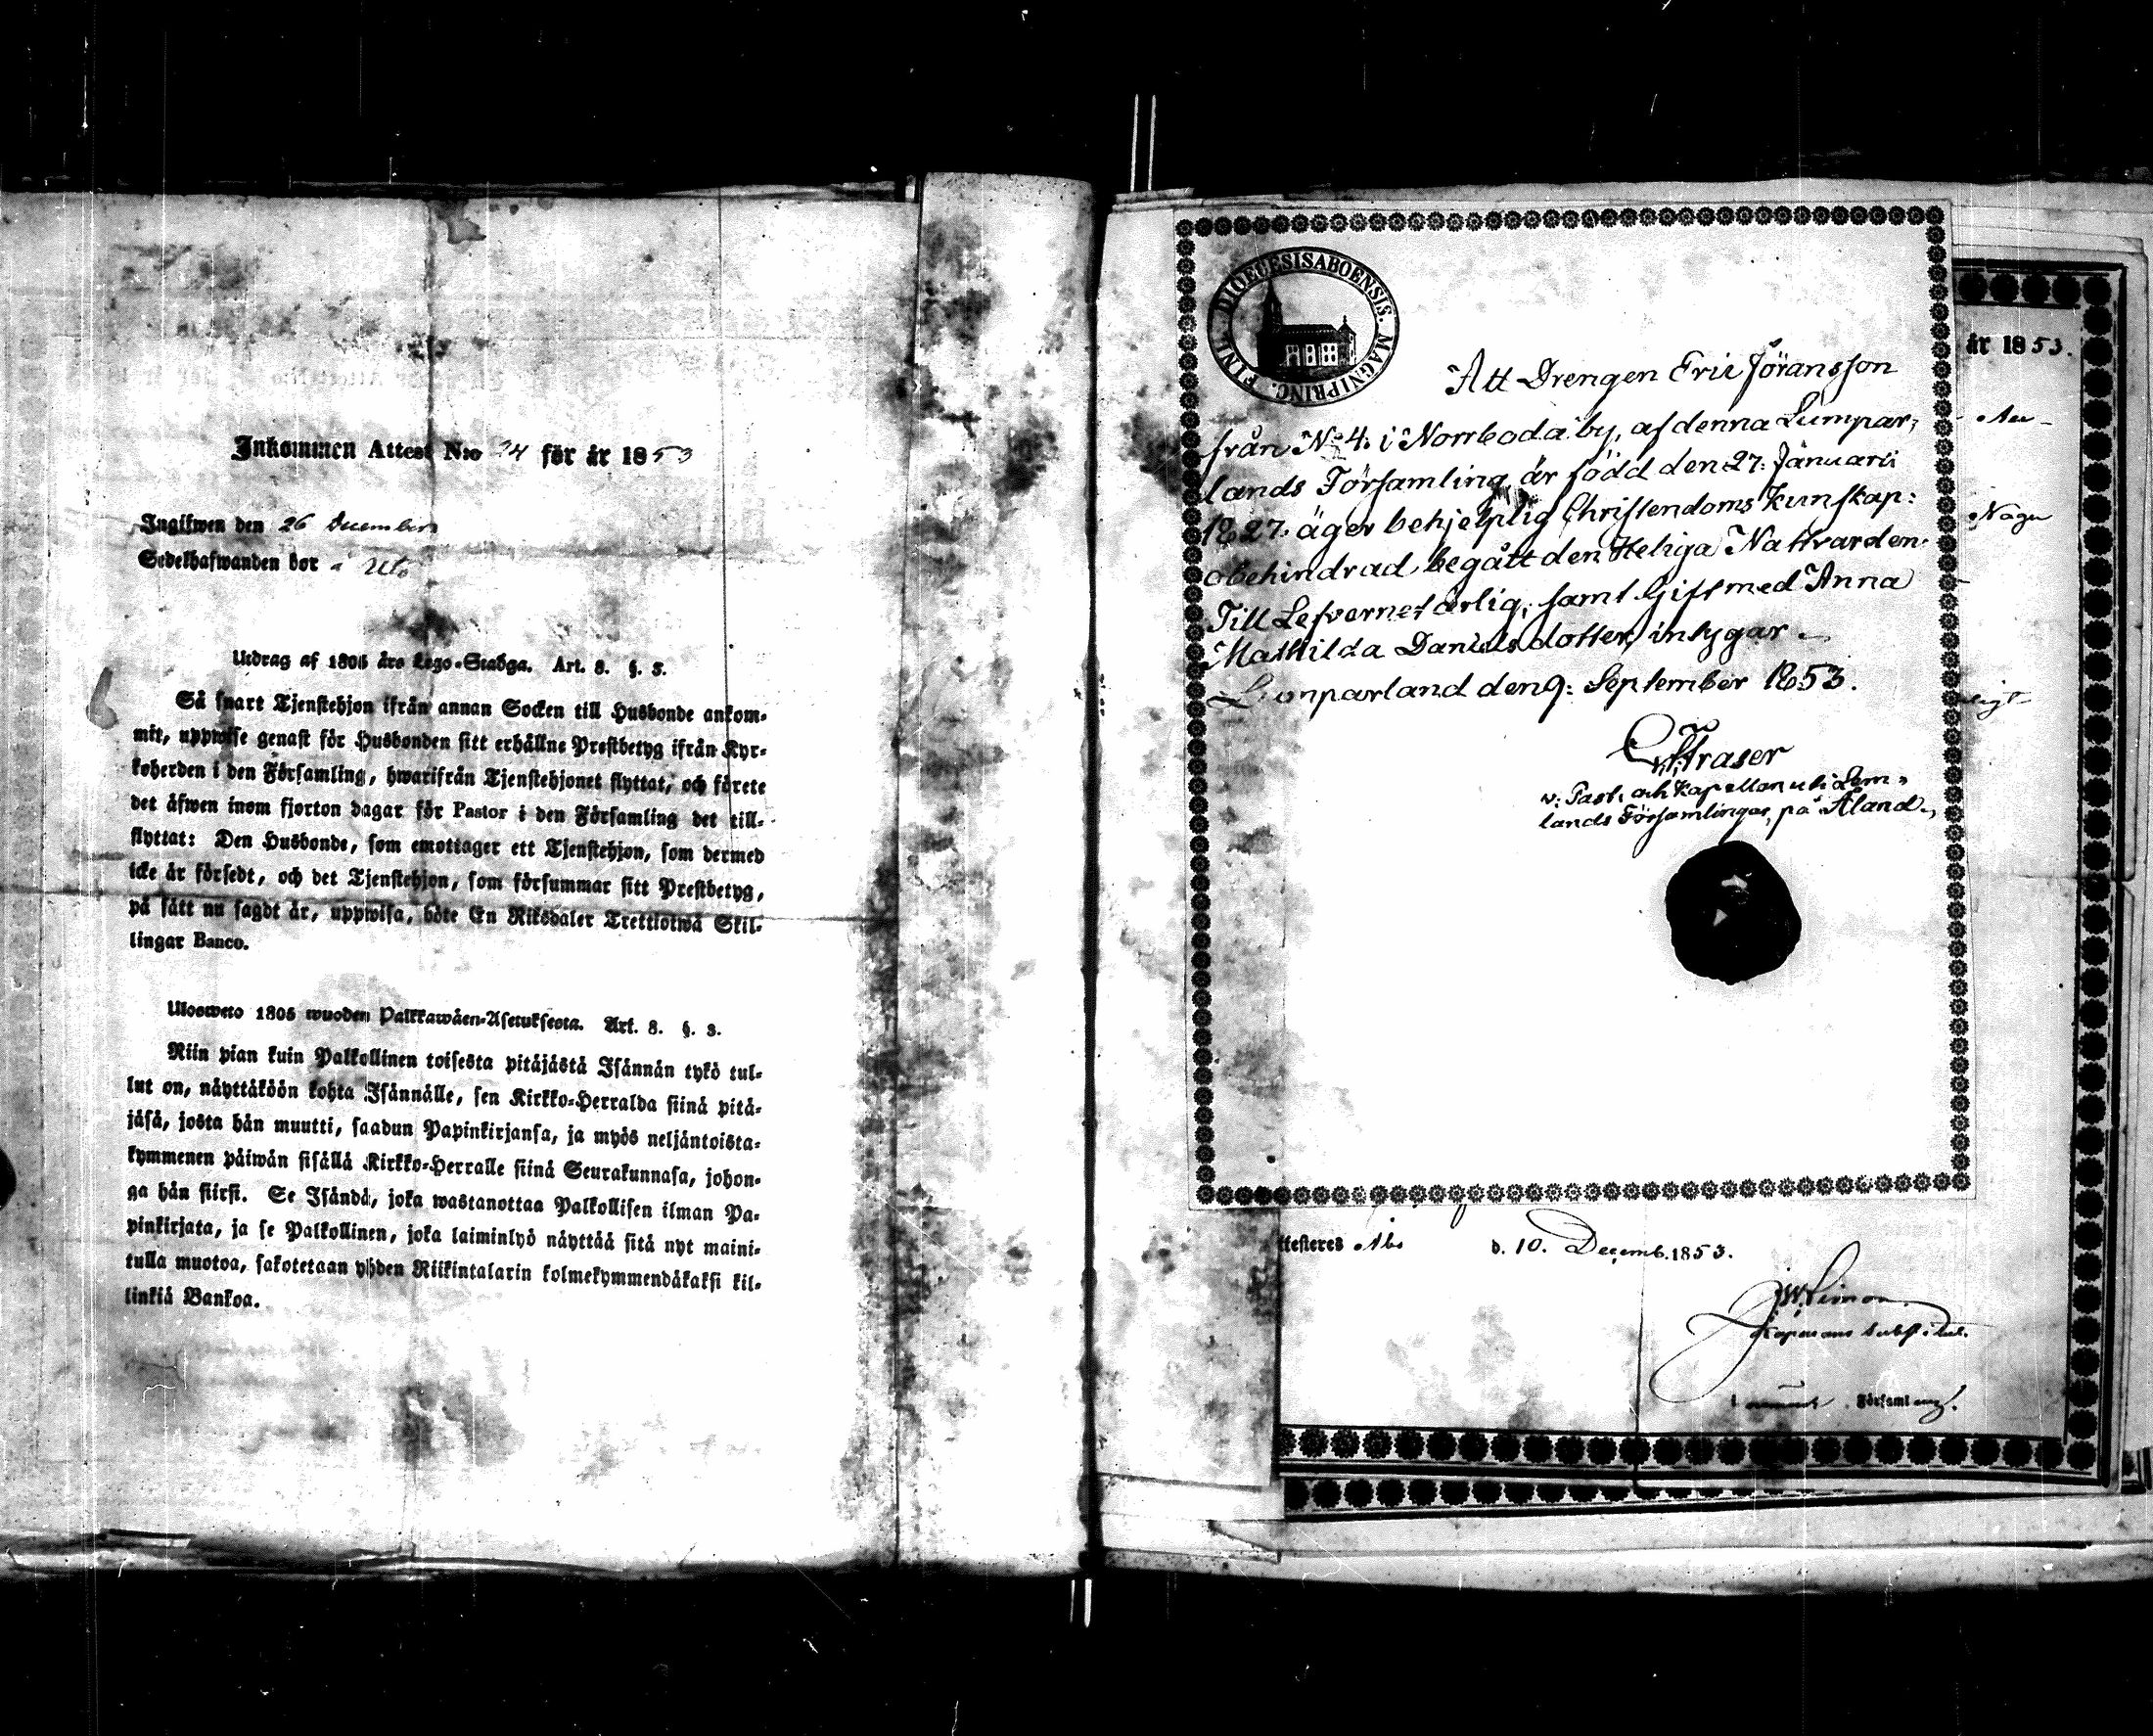 Inkommen Attest N:o 24 för år 1853
Ingifwen den 26 December
Sedelhafwanden bor i Utö
Utdrag af 1805 års Lego-Stadga. Art. 8. §. 3.
Så snart Tjenstehjon ifrån annan Socken till Husbonde ankom-
mit, uppwise genast för Husbonden sitt erhållne Prestbetyg ifrån Kyr-
koherden i den Församling, hwarifrån Tjenstehjonet flyttat, och förete
det äfwen inom fjorton dagar för Pastor i den Församling det till-
flyttat: Den Husbonde, som emottager ett Tjenstehjon, som dermed
icke är försedt, och det Tjenstehjon, som försummar sitt Prestbetyg,
på sätt nu sagdt är, uppwisa, böte En Riksdaler Trettiotwå Skil-
lingar Banco.
Ulosweto 1805 wuoden Palkkawäen-Asetuksesta. Art. 8. §. 3.
Niin pian kuin Palkollinen toisesta pitäjästä Isännän tykö tul-
lut on, näyttäköön kohta Isännälle, sen Kirkko-Herralda siinä pitä-
jäsä, josta hän muutti, saadun Papinkirjansa, ja myös neljäntoista-
kymmenen päiwän sisällä Kirkko-Herralle siinä Seurakunnasa, johon-
ga hän siirsi. Se Isändä, joka wastanottaa Palkollisen ilman Pa-
pinkirjata, ja se Palkollinen, joka laiminlyö näyttää sitä nyt maini-
tulla muotoa, sakotetaan yhden Riikintalarin kolmekymmendäkaksi kil-
linkiä Bankoa.
DIOECESIS ABOENSIS. MAGNI PRINC. FINL.
Att Drengen Eric Jöransson
från N:o 4. i Norrboda by, af denna Lumpar-
lands Församling är född den 27: Januarii
1827. äger behjelplig Christendoms Kunskap:
obehindrad begått den Heliga Nattvarden.
Till Lefvernet ärlig, samt Gift med Anna
Mathilda Danielsdotter, intygar
Lumparland den 9: September 1853.
Fraser
v: Past. och Kapellan uti Lem-
lands Församlingar, på Åland.
år 1853.
Nagu
ttesteres Åbo d. 10. Decemb. 1853.
Församling.